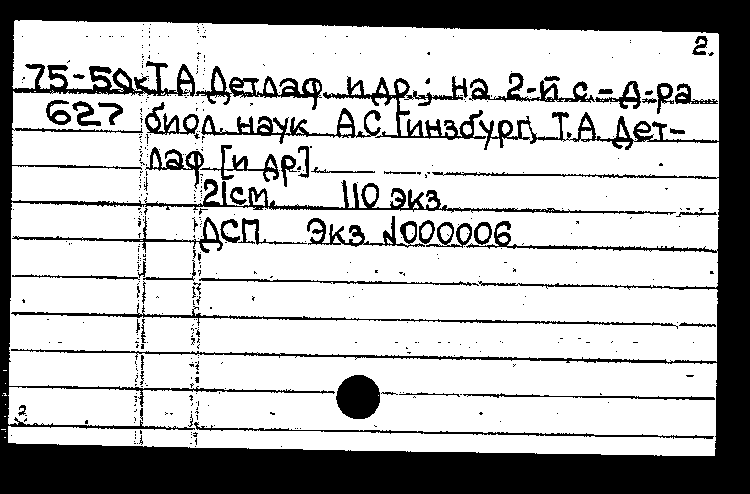 2.
75-50к Т.А Детлаф. и др.; на 2-й с. - д-ра
627 биол. наук А.С. Гинзбург, Т.А. Дет-
лаф [и др.].
21см. 110 экз.
ДСП Экз. N000006
3